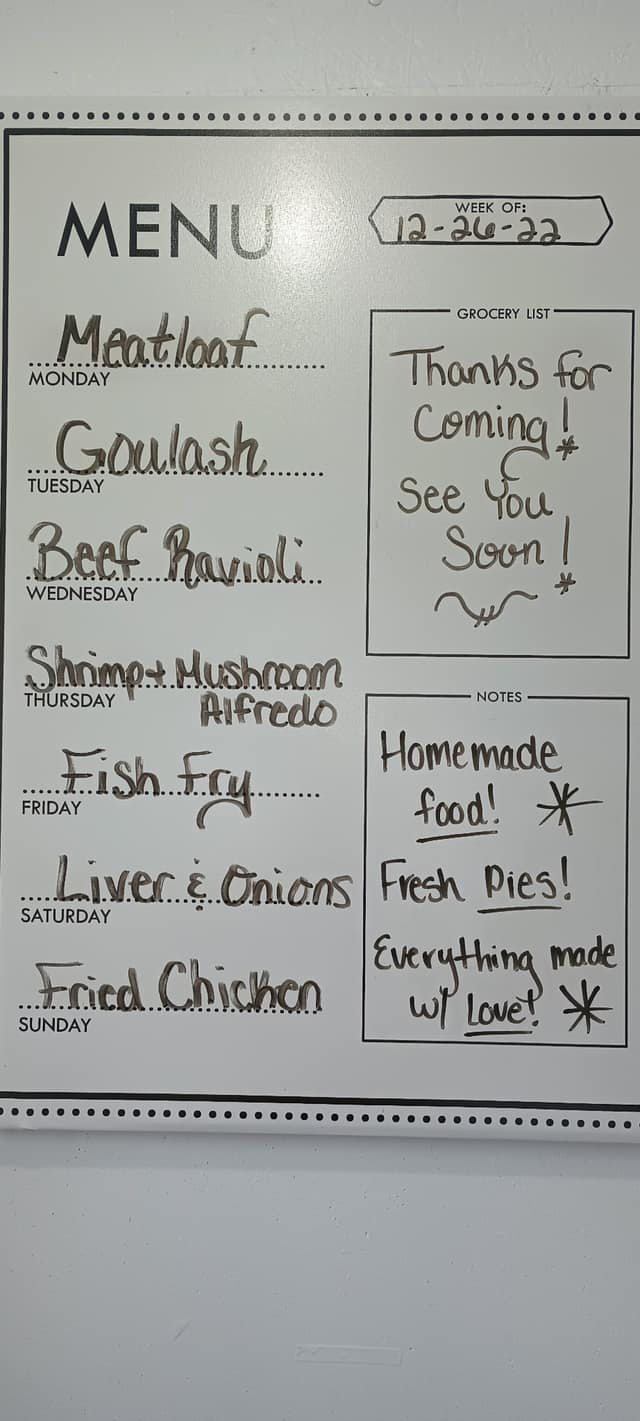 MENU
WEEK OF:
12-26-22
Meatloaf
MONDAY
Goulash
TUESDAY
Beef Ravioli
WEDNESDAY
Shrimp + Mushroom
THURSDAY
Alfredo
Fish Fry
FRIDAY
Liver & Onions
SATURDAY
Fried Chicken
SUNDAY
GROCERY LIST
Thanks for
Coming!
See You
Soon!
NOTES
Homemade
food!
Fresh Pies!
Everything made
w/ Love!